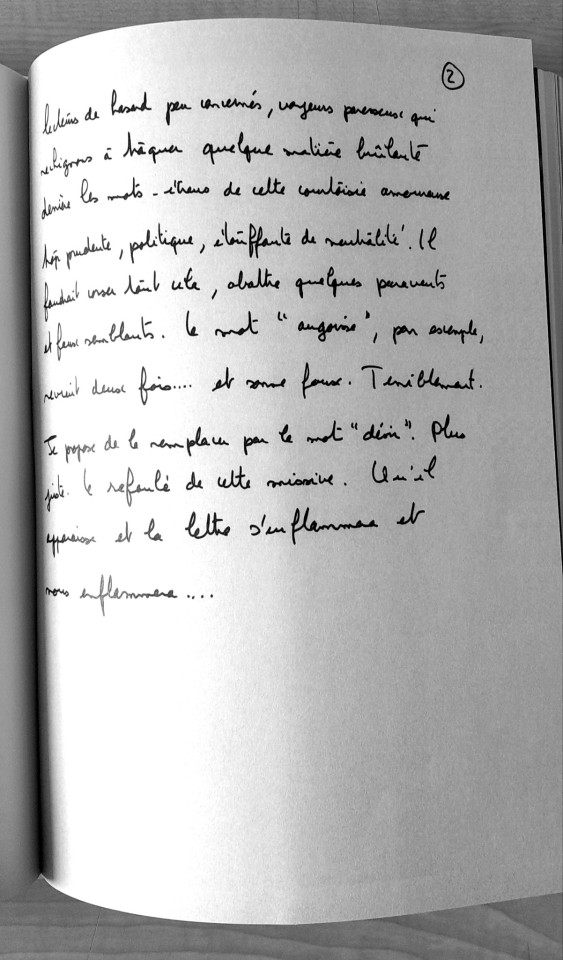 2
lecteurs de hasard peu concernés, voyeurs paresseux qui
rechignons à traquer quelque matière brûlante
derrière les mots - exclus de cette courtoisie amoureuse
trop prudente, politique, étouffante de neutralité. Il
faudrait oser tout cela, abattre quelques paravents
et faux semblants. Le mot "angoisse", par exemple,
revient deux fois.... et sonne faux. Terriblement.
Je propose de le remplacer par le mot "désir". Plus
juste. Le refoulé de cette missive. Qu'il
apparaisse et la lettre s'enflammera et
nous enflammera....